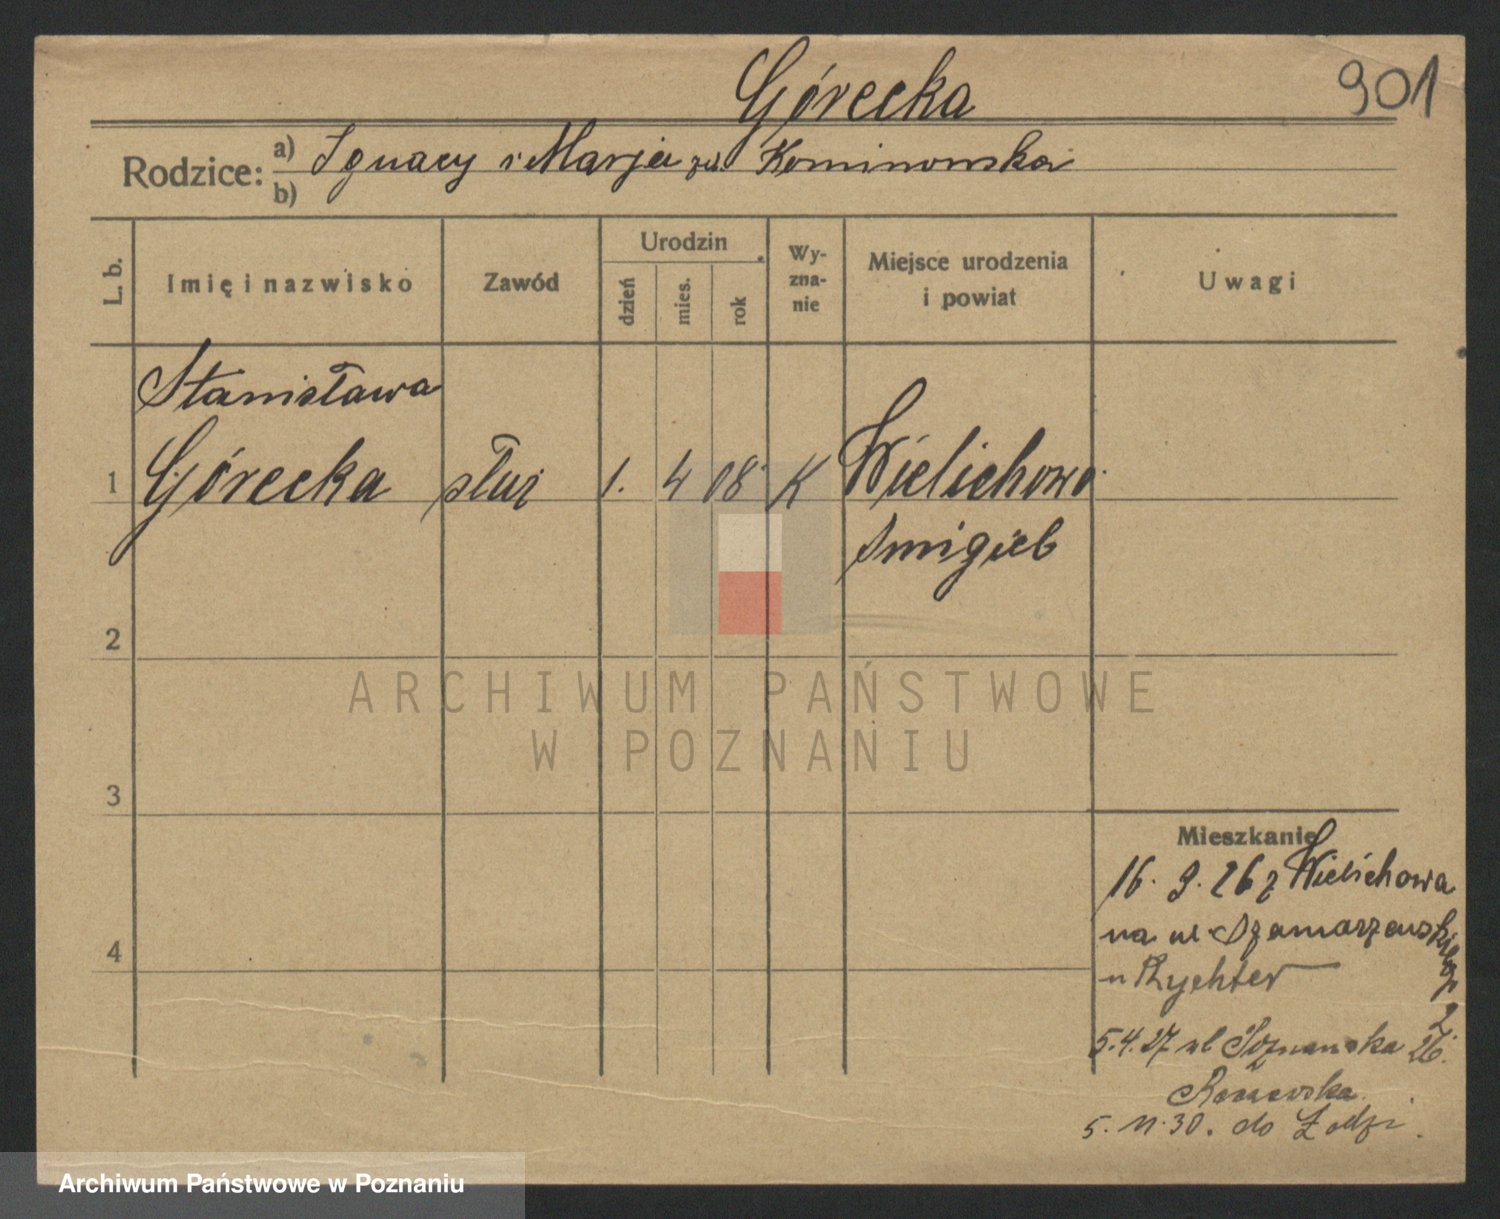 Górecka
901
Rodzice: a) Ignacy i Marja zd. Kominowska
b)
L. b.
Imię i nazwisko
Zawód
Urodzin
dzień
mies.
rok
Wy-
zna-
nie
Miejsce urodzenia
i powiat
Uwagi
Stanisława
1 Górecka służ 1. 4 08 K Wielichowo
Smigiel
2
3
4
Mieszkanie
16. 9. 26 z Wielichowa
na ul Szamarzewskiego
2
u Rychter
5.4.27 ul Poznańska 26.
5. 11. 30. do Łodzi.
ARCHIWUM PAŃSTWOWE
W POZNANIU
Archiwum Państwowe w Poznaniu